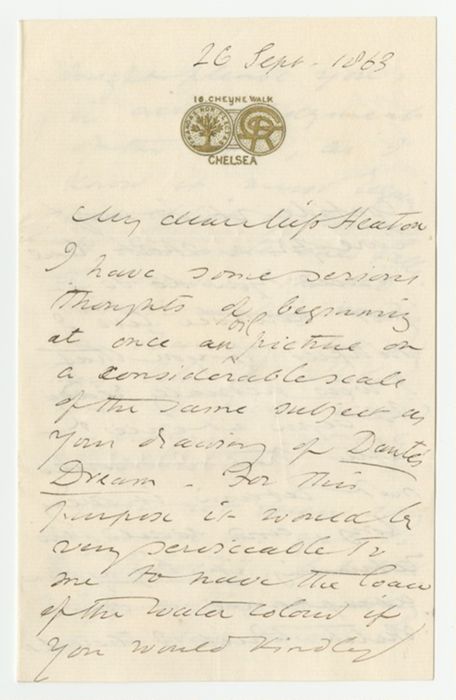 26 Sept. 1863
16 CHEYNE WALK
CHELSEA
My dear Miss Heaton
I have some serious
thoughts of beginning
at once an oil picture on
a considerable scale
of the same subject as
your drawing of Dante's
Dream. For this
purpose it would be
very serviceable to
me to have the loan
of the water colour if
you would kindly